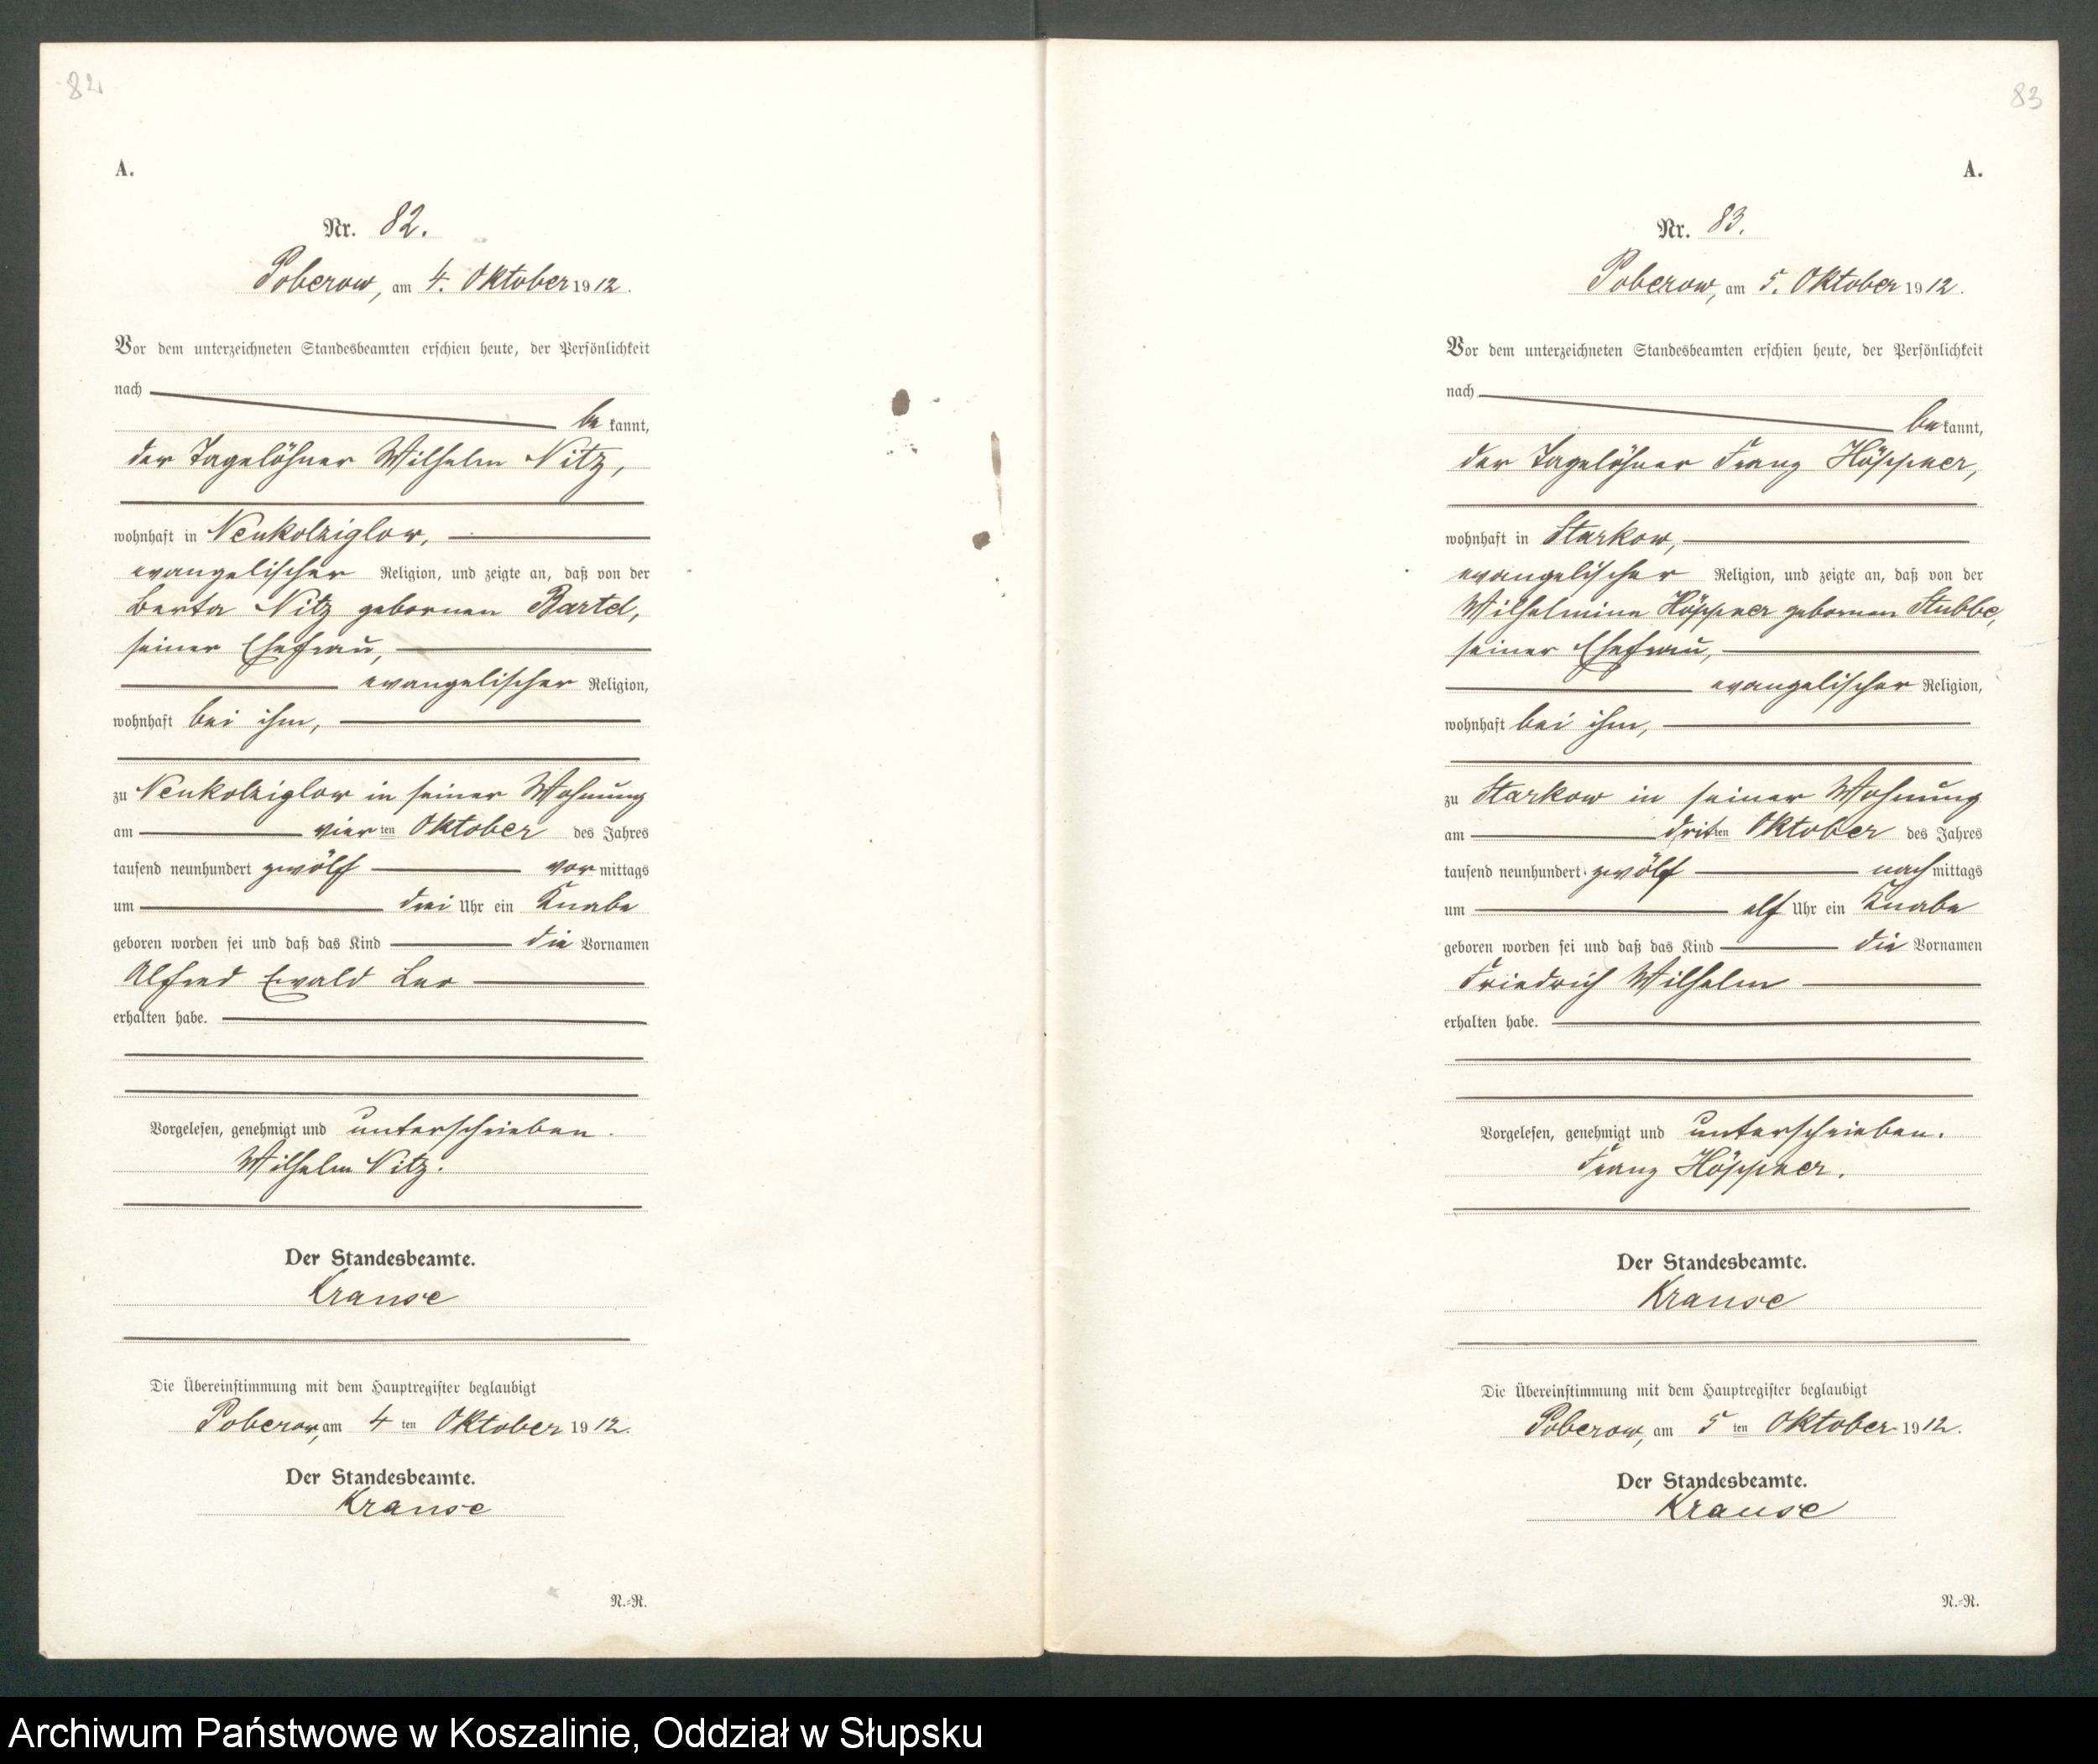 82
A.
Nr. 82.
Poberow, am 4. Oktober 1912.
Vor dem unterzeichneten Standesbeamten erschien heute, der Persönlichkeit
nach
bekannt,
der Tagelöhner Wilhelm Nitz,
wohnhaft in Neukolziglow,
evangelischer Religion, und zeigte an, daß von der
Berta Nitz gebornen Bartel,
seiner Ehefrau,
evangelischer Religion,
wohnhaft bei ihm,
zu Neukolziglow in seiner Wohnung
am vierten Oktober des Jahres
tausend neunhundert zwölf vormittags
um drei Uhr ein Knabe
geboren worden sei und daß das Kind die Vornamen
Alfred Ewald Leo
erhalten habe.
Vorgelesen, genehmigt und unterschrieben.
Wilhelm Nitz.
Der Standesbeamte.
Krause
Die Übereinstimmung mit dem Hauptregister beglaubigt
Poberow, am 4ten Oktober 1912.
Der Standesbeamte.
Krause
N.-R.
83
A.
Nr. 83.
Poberow, am 5. Oktober 1912.
Vor dem unterzeichneten Standesbeamten erschien heute, der Persönlichkeit
nach
bekannt,
der Tagelöhner Franz Höppner,
wohnhaft in Starkow,
evangelischer Religion, und zeigte an, daß von der
Wilhelmine Höppner gebornen Stubbe,
seiner Ehefrau,
evangelischer Religion,
wohnhaft bei ihm,
zu Starkow in seiner Wohnung
am dritten Oktober des Jahres
tausend neunhundert zwölf nachmittags
um elf Uhr ein Knabe
geboren worden sei und daß das Kind die Vornamen
Friedrich Wilhelm
erhalten habe.
Vorgelesen, genehmigt und unterschrieben.
Franz Höppner.
Der Standesbeamte.
Krause
Die Übereinstimmung mit dem Hauptregister beglaubigt
Poberow, am 5ten Oktober 1912.
Der Standesbeamte.
Krause
N.-R.
Archiwum Państwowe w Koszalinie, Oddział w Słupsku